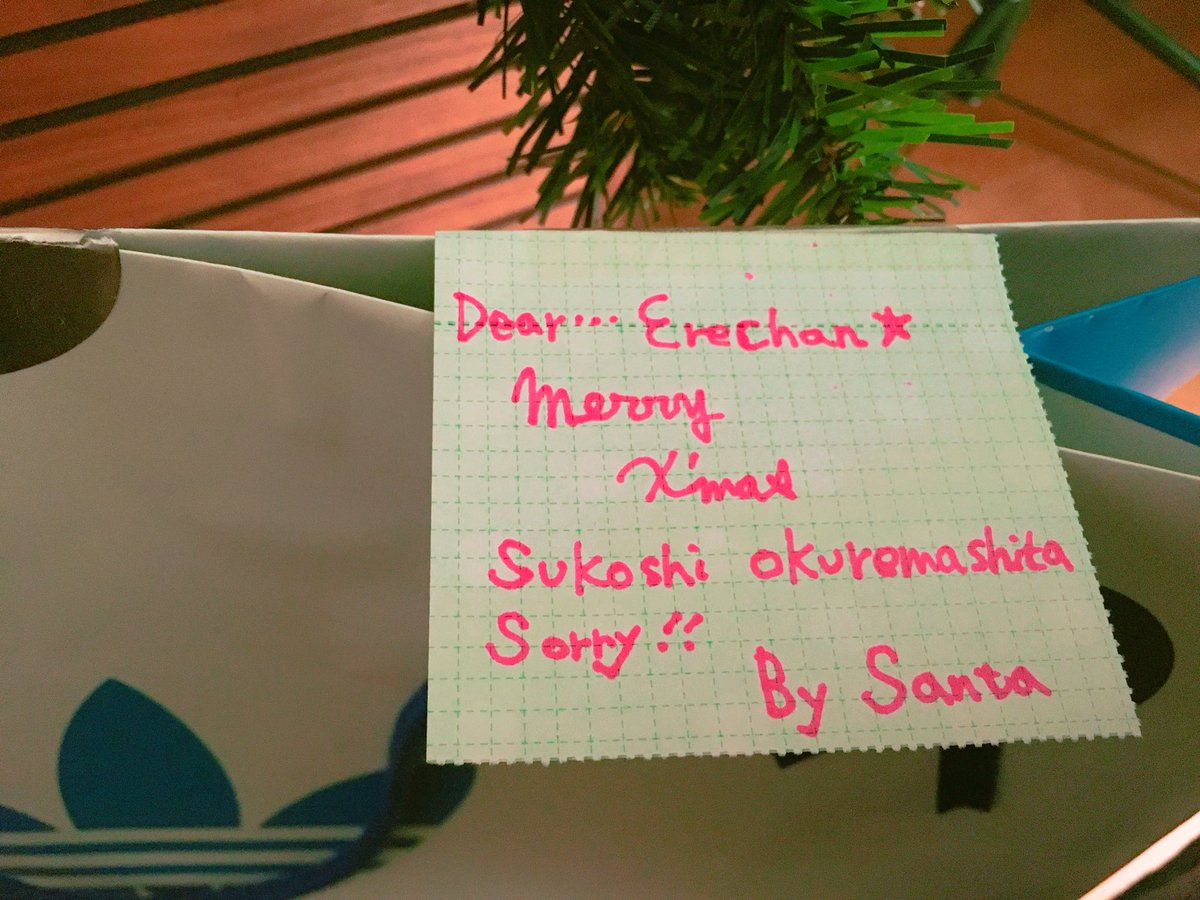 Dear... Erechan★
Merry
X'mas
Sukoshi okuremashita
Sorry!!
By Santa